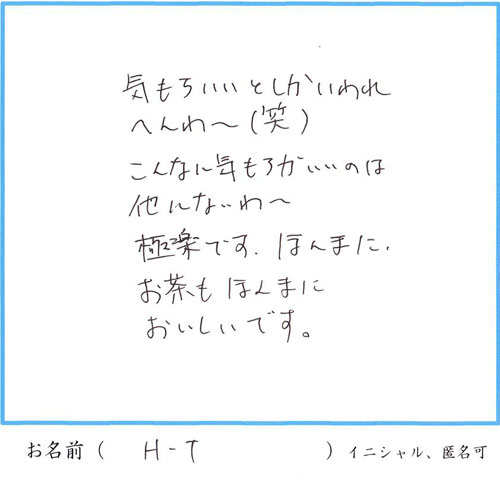 気もちいいとしかいわれ
へんわ〜(笑)
こんなに気もちがいいのは
他にないわ〜
極楽です、ほんまに、
お茶もほんまに
おいしいです。
お名前( H-T )イニシャル、匿名可